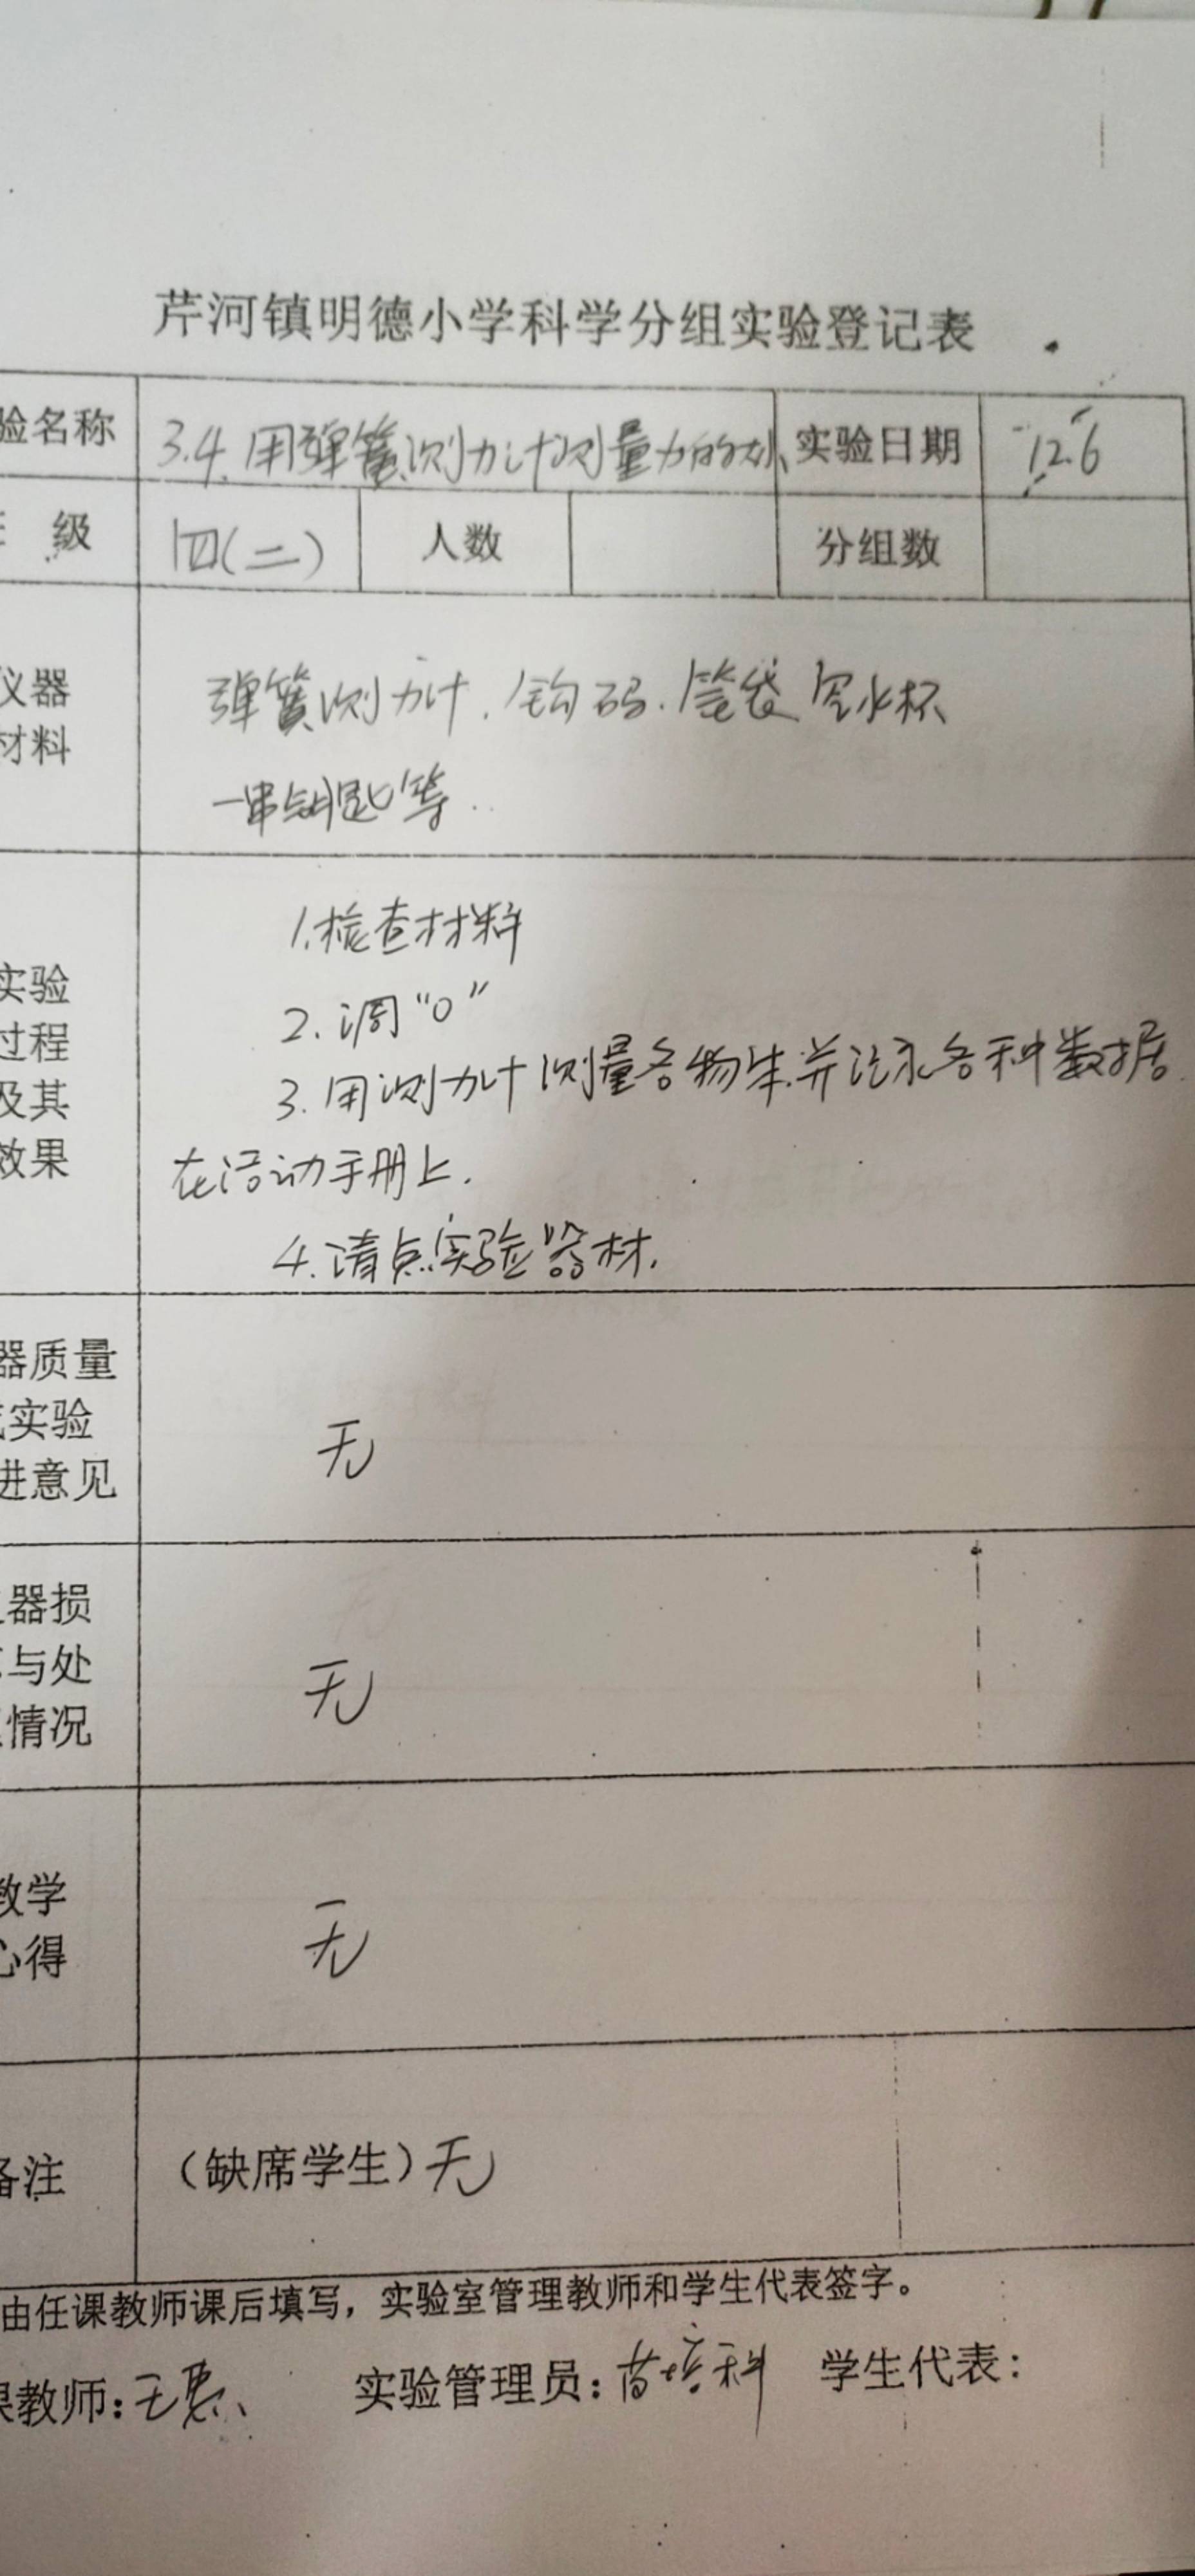 芹河镇明德小学科学分组实验登记表
验名称 3.4.用弹簧测力计测量力的大小 实验日期 12.6
级 四(二) 人数 分组数
仪器
材料
弹簧测力计.钩码.笔袋 空水杯
一串钥匙等.
实验
过程
及其
效果
1.检查材料
2.调“0”
3.用测力计测量各物体.并记录各种数据
在活动手册上.
4.清点实验器材.
器质量
实验
进意见
无
器损
与处
情况
无
教学
心得
无
备注
(缺席学生)无
由任课教师课后填写，实验室管理教师和学生代表签字。
课教师:王 实验管理员:苗培科 学生代表: